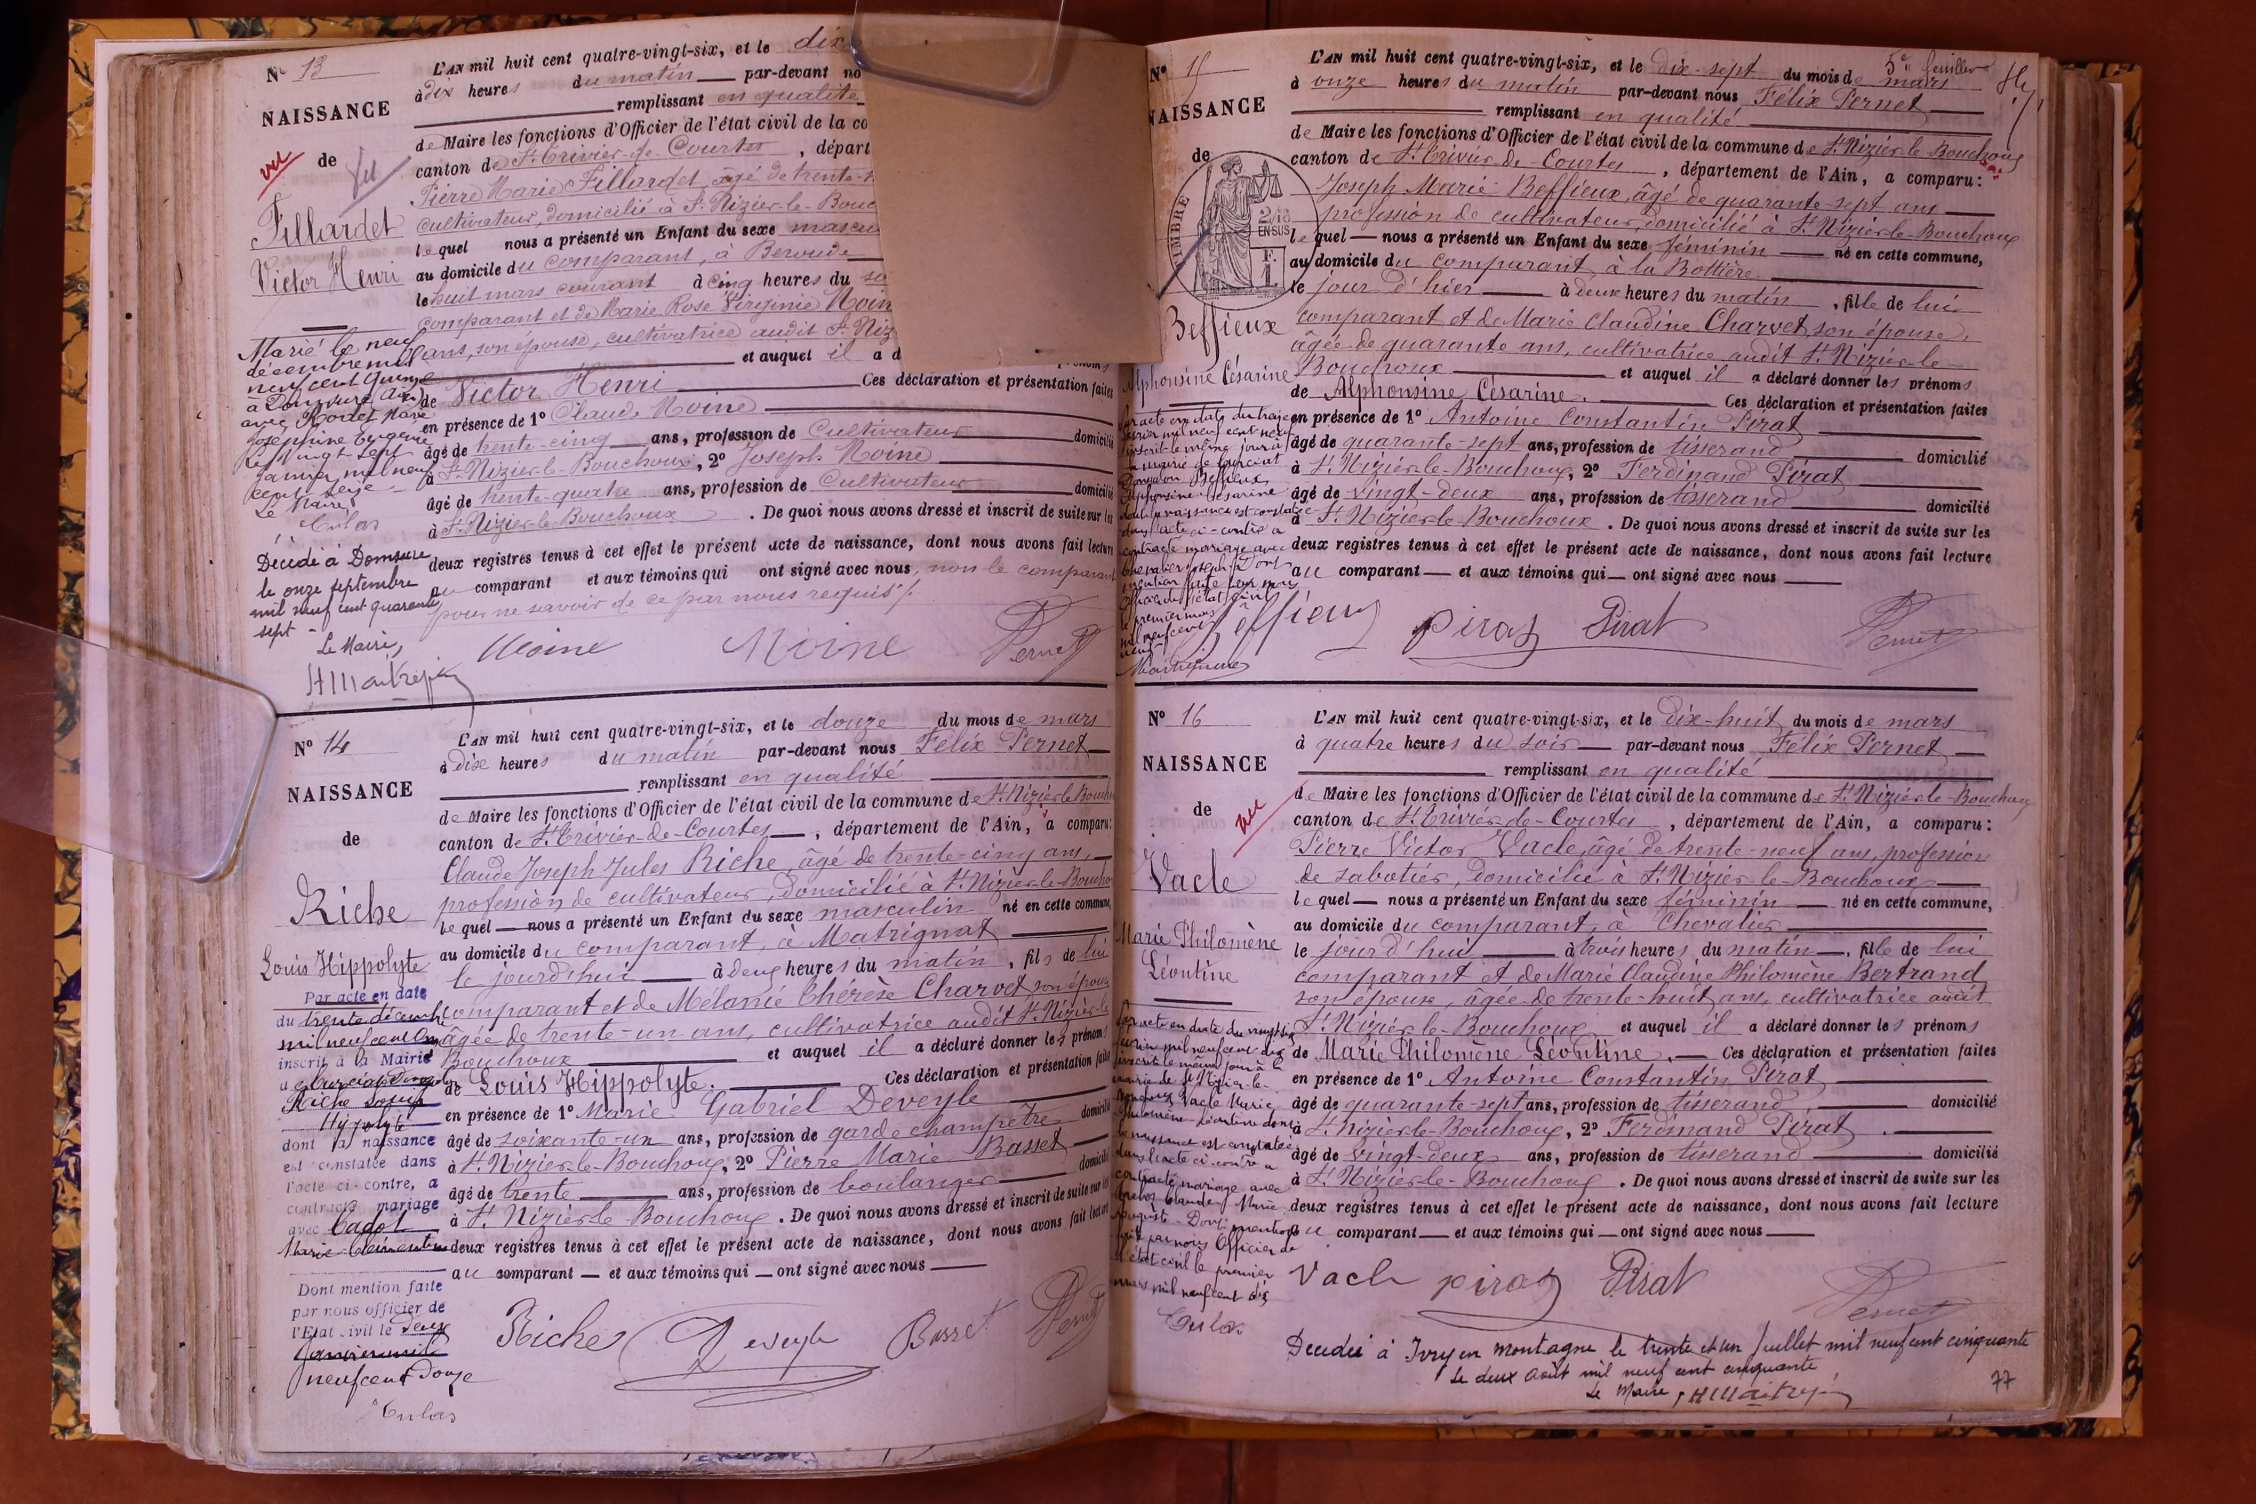 N° 13
NAISSANCE
de
vu
Vu
Fillardet
Victor Henri
Marié le neuf
décembre mil
neuf cent quinze
à Domsure Ain
avec Rodet Marie
Joséphine Eugénie
Le vingt sept
janvier mil neuf
cent seize
Le Maire
Culas
Décédé à Domsure
le onze septembre
mil neuf cent quarante
sept -
Le Maire,
L'AN mil huit cent quatre-vingt-six, et le dix
à dix heures du matin par-devant no
remplissant en qualité
de Maire les fonctions d'Officier de l'état civil de la co
canton de St Trivier-de-Courtes, départ
Pierre Marie Fillardet, âgé de trente-
cultivateur, domicilié à St Nizier-le-Bouc
lequel nous a présenté un Enfant du sexe mascu
au domicile du comparant, à Beroude
le huit mars courant à cinq heures du so
comparant et de Marie Rose Virginie Moin
ans, son épouse, cultivatrice audit St Niz
et auquel il a d
prénoms
de Victor Henri Ces déclaration et présentation faites
en présence de 1° Claude Moine
âgé de trente-cinq ans, profession de Cultivateur domicilié
à St Nizier-le-Bouchoux, 2° Joseph Moine
âgé de trente-quatre ans, profession de Cultivateur domicilié
à St Nizier-le-Bouchoux. De quoi nous avons dressé et inscrit de suite sur les
deux registres tenus à cet effet le présent acte de naissance, dont nous avons fait lecture
au comparant et aux témoins qui ont signé avec nous, non le comparant
pour ne savoir de ce par nous requis /.
Moine Moine Pernet
N° 14
NAISSANCE
de
Riche
Louis Hippolyte
Par acte en date
du trente décembre
mil neuf cent onze
inscrit à la Mairie
Riche Louis
Hypolyte
dont la naissance
est constatée dans
l'acte ci-contre, a
contracté mariage
avec Cadot
Marie Clémentine
Dont mention faite
par nous officier de
l'Etat Civil le deux
janvier mil
neuf cent douze
Culas
L'AN mil huit cent quatre-vingt-six, et le douze du mois de mars
à dix heures du matin par-devant nous Félix Pernet
remplissant en qualité
de Maire les fonctions d'Officier de l'état civil de la commune de St Nizier-le-Bouchoux
canton de St Trivier-de-Courtes, département de l'Ain, a comparu:
Claude Joseph Jules Riche, âgé de trente-cinq ans,
profession de cultivateur, domicilié à St Nizier-le-Boucho
lequel nous a présenté un Enfant du sexe masculin né en cette commune,
au domicile du comparant, à Matrignat
le jourd'hui à deux heures du matin, fils de lui
comparant et de Mélanie Thérèse Charvet son épouse
âgée de trente-un ans, cultivatrice audit St Nizier-le
Bouchoux et auquel il a déclaré donner les prénoms
de Louis Hippolyte. Ces déclaration et présentation faites
en présence de 1° Marie Gabriel Deveyle
âgé de soixante-un ans, profession de garde champêtre domicilié
à St Nizier-le-Bouchoux, 2° Pierre Marie Basset
âgé de trente ans, profession de boulanger domicilié
à St Nizier-le-Bouchoux. De quoi nous avons dressé et inscrit de suite sur les
deux registres tenus à cet effet le présent acte de naissance, dont nous avons fait lecture
au comparant et aux témoins qui ont signé avec nous
Riche Deveyle Basset Pernet
5e feuillet
N° 15
NAISSANCE
de
TIMBRE
2/10
EN SUS
F.
1
Beffieux
Alphonsine Césarine
L'AN mil huit cent quatre-vingt-six, et le dix-sept du mois de mars
à onze heures du matin par-devant nous Félix Pernet
remplissant en qualité
de Maire les fonctions d'Officier de l'état civil de la commune de St Nizier-le-Bouchoux
canton de St Trivier-de-Courtes, département de l'Ain, a comparu:
Joseph Marie Beffieux, âgé de quarante-sept ans
profession de cultivateur, domicilié à St Nizier-le-Bouchoux
lequel nous a présenté un Enfant du sexe féminin né en cette commune,
au domicile du comparant, à la Bottière
le jour d'hier à deux heures du matin, fille de lui
comparant et de Marie Claudine Charvet, son épouse,
âgée de quarante ans, cultivatrice audit St Nizier-le-
Bouchoux et auquel il a déclaré donner les prénoms
de Alphonsine Césarine. Ces déclaration et présentation faites
en présence de 1° Antoine Constantin Pirat
âgé de quarante-sept ans, profession de tisserand domicilié
à St Nizier-le-Bouchoux, 2° Ferdinand Pirat
âgé de vingt-deux ans, profession de tisserand domicilié
à St Nizier-le-Bouchoux. De quoi nous avons dressé et inscrit de suite sur les
deux registres tenus à cet effet le présent acte de naissance, dont nous avons fait lecture
au comparant et aux témoins qui ont signé avec nous
Beffieux Pirat Pirat Pernet
N° 16
NAISSANCE
de
vu
Vacle
Marie Philomène
Léontine
Culas
L'AN mil huit cent quatre-vingt-six, et le dix-huit du mois de mars
à quatre heures du soir par-devant nous Félix Pernet
remplissant en qualité
de Maire les fonctions d'Officier de l'état civil de la commune de St Nizier-le-Bouchoux
canton de St Trivier-de-Courtes, département de l'Ain, a comparu:
Pierre Victor Vacle, âgé de trente-neuf ans, profession
de sabotier, domicilié à St Nizier-le-Bouchoux
lequel nous a présenté un Enfant du sexe féminin né en cette commune,
au domicile du comparant, à Chevalier
le jourd'hui à trois heures du matin, fille de lui
comparant et de Marie Claudine Philomène Bertrand
son épouse, âgée de trente-huit ans, cultivatrice audit
St Nizier-le-Bouchoux et auquel il a déclaré donner les prénoms
de Marie Philomène Léontine. Ces déclaration et présentation faites
en présence de 1° Antoine Constantin Pirat
âgé de quarante-sept ans, profession de tisserand domicilié
à St Nizier-le-Bouchoux, 2° Ferdinand Pirat.
âgé de vingt-deux ans, profession de tisserand domicilié
à St Nizier-le-Bouchoux. De quoi nous avons dressé et inscrit de suite sur les
deux registres tenus à cet effet le présent acte de naissance, dont nous avons fait lecture
au comparant et aux témoins qui ont signé avec nous
Vacle Pirat Pirat Pernet
Décédée à Ivry en montagne le trente et un Juillet mil neuf cent cinquante
Le deux Août mil neuf cent cinquante
Le Maire,
77